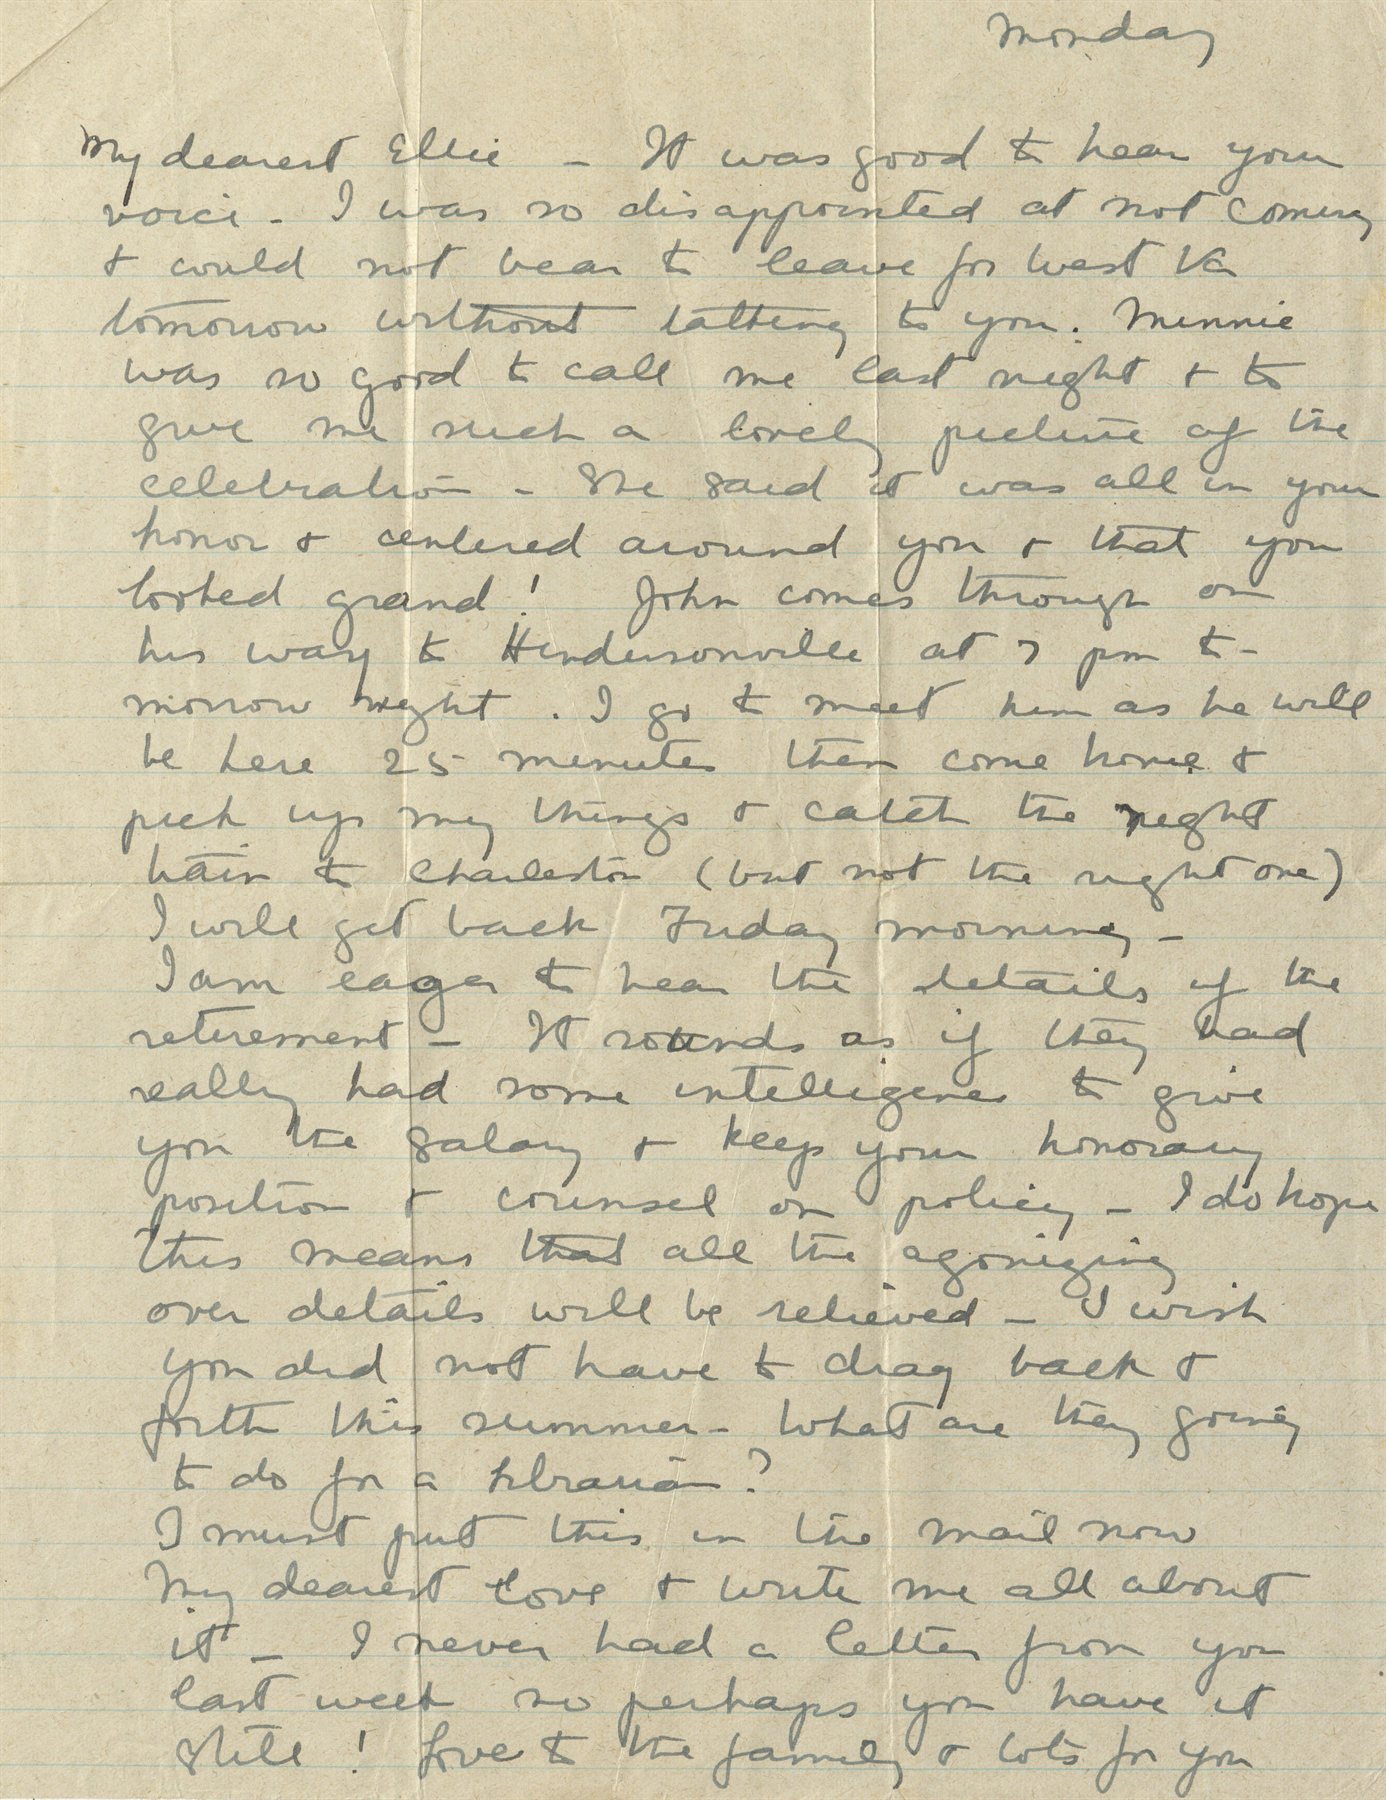 Monday
My dearest Ellie - It was good to hear your
voice - I was so disappointed at not coming
+ could not bear to leave for West Va
tomorrow without talking to you. Minnie
was so good to call me last night + to
give me such a lovely picture of the
celebration - She said it was all in your
honor + centered around you + that you
looked grand! John comes through on
his way to Hendersonville at 7 pm to-
morrow night. I go to meet him as he will
be here 25 minutes then come home +
pick up my things + catch the night
train to Charleston (but not the right one)
I will get back Friday morning -
I am eager to hear the details of the
retirement - It sounds as if they had
really had some intelligence to give
you the salary + keep your honorary
position + counsel on policy - I do hope
this means that all the agonizing
over details will be relieved - I wish
you did not have to drag back +
forth this summer - What are they going
to do for a librarian?
I must put this in the mail now
My dearest love + write me all about
it - I never had a letter from you
last week so perhaps you have it
still! Love to the family + lots for you